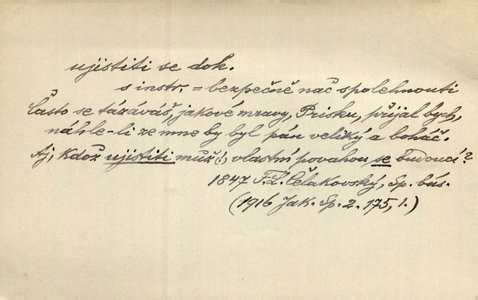 ujistiti se dok.
s instr. = bezpečně nač spolehnouti
Často se tázáváš, jakové mravy, Prisku, přijal bych,
náhle-li ze mne by byl pán veliký a boháč.
Aj, kdož ujistiti můž(!) vlastní povahou se budoucí?
1847 F. L. Čelakovský, Sp. bás.
(1916 Jak. Sp. 2. 175, 1.)